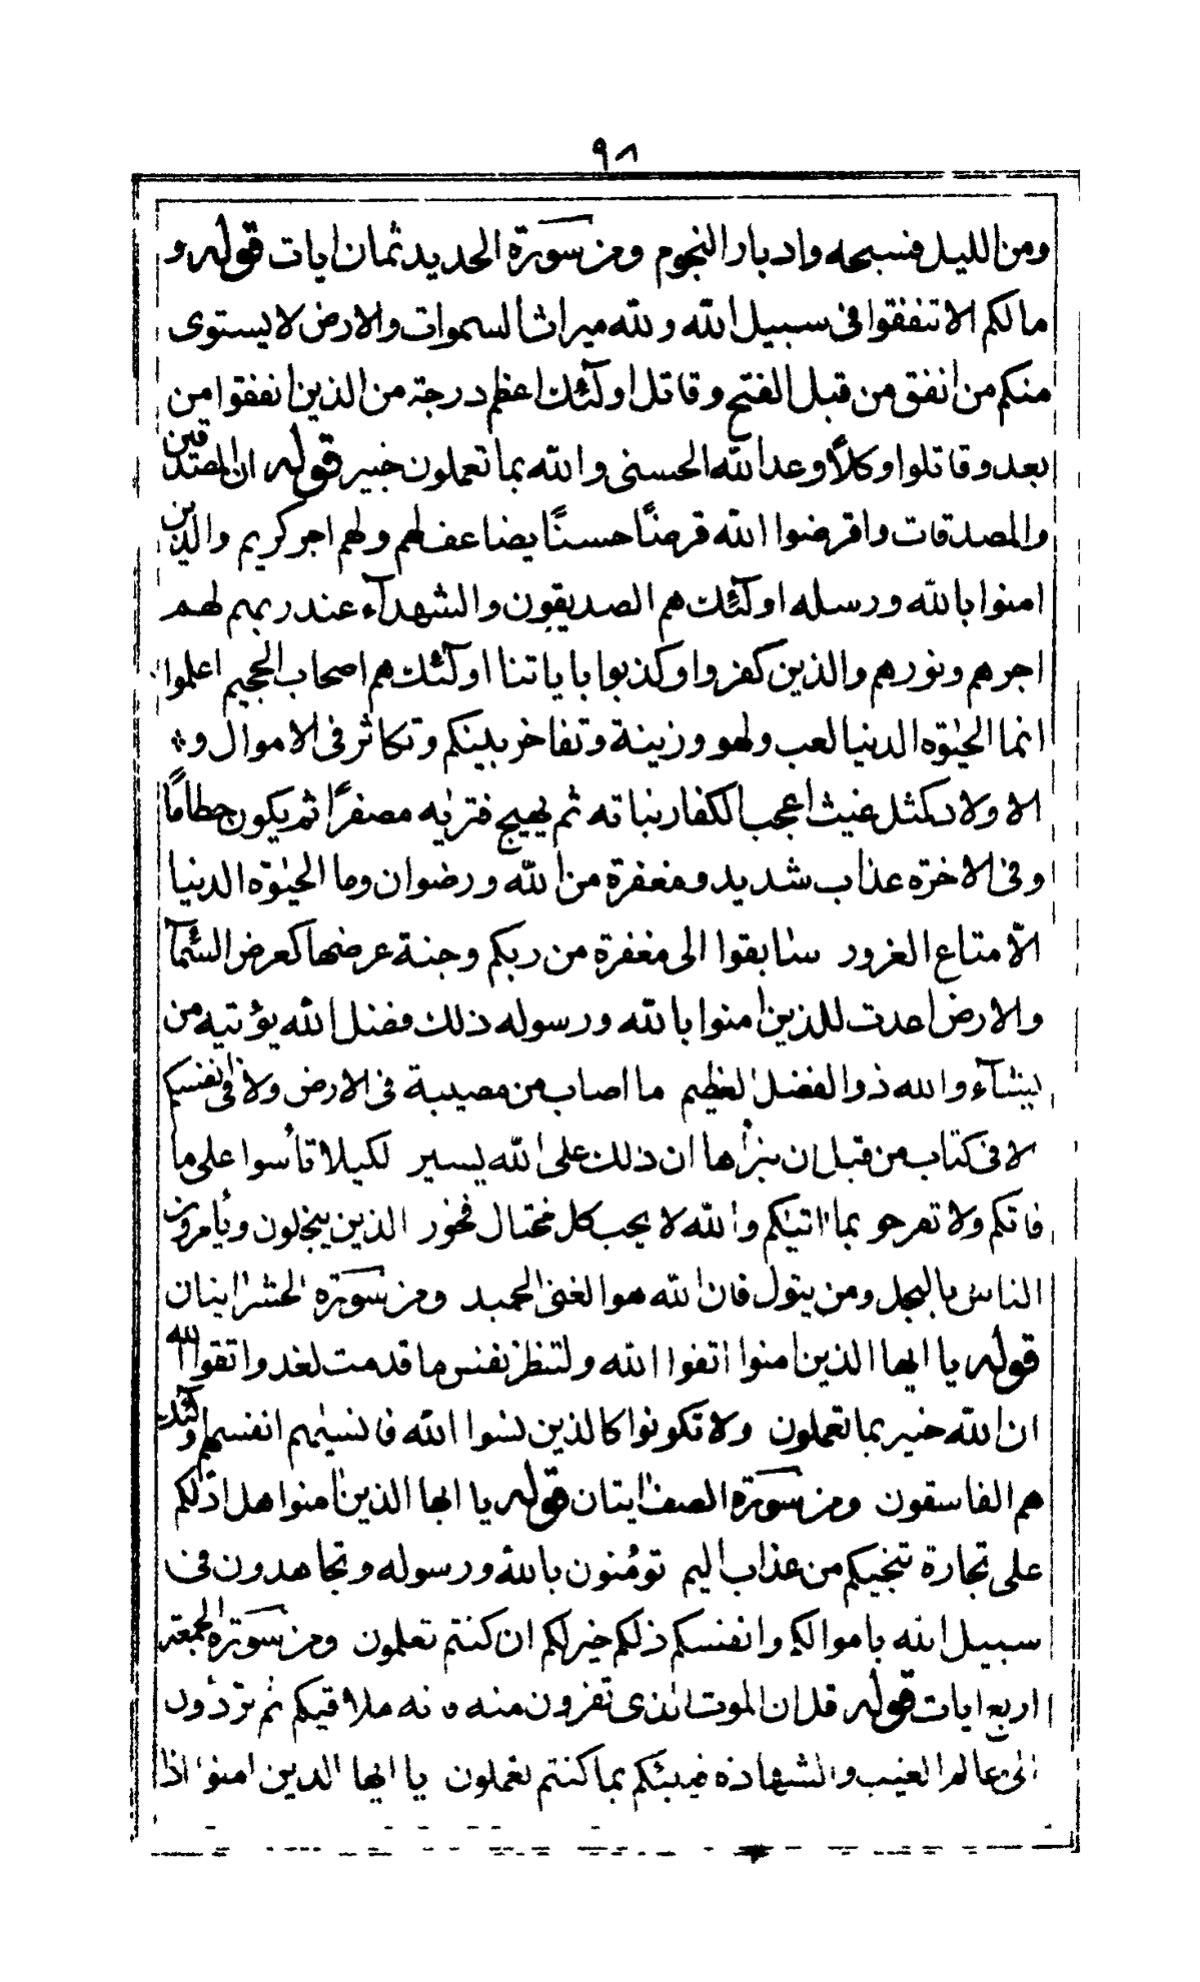 ٩٨
ومن الليل فسبحه وادبار النجوم ومن سورة الحديد ثمان ايات قوله و
مالكم الا تنفقوا فى سبيل الله ولله ميراث السموات والارض لا يستوى
منكم من انفق من قبل الفتح وقاتل اولٓئك اعظم درجة من الذين انفقوا من
بعد وقاتلوا وكلاً وعد الله الحسنى والله بما تعملون خبير قوله ان المصدقين
والمصدقات واقرضوا الله قرضًا حسنًا يضاعف لهم ولهم اجر كريم والذين
امنوا بالله ورسله اولٓئك هم الصديقون والشهدآء عند ربهم لهم
اجرهم ونورهم والذين كفروا وكذبوا باياتنا اولٓئك هم اصحاب الجحيم اعلموا
انما الحيٰوة الدنيا لعب ولهو وزينة وتفاخر بينكم وتكاثر فى الاموال و
الاولاد كمثل غيث اعجب الكفار نباته ثم يهيج فتريٰه مصفرًا ثم يكون حطامًا
وفى الاخرة عذاب شديد ومغفرة من الله ورضوان وما الحيٰوة الدنيا
الّا متاع الغرور سابقوا الى مغفرة من ربكم وجنة عرضها كعرض السمآء
والارض اعدت للذين امنوا بالله ورسوله ذلك فضل الله يؤتيه من
يشآء والله ذو الفضل العظيم ما اصاب من مصيبة فى الارض ولا فى انفسكم
الا فى كتاب من قبل ان نبرأها ان ذلك على الله يسير لكيلا تأسوا على ما
فاتكم ولا تفرحو بما اتيٰكم والله لا يحب كل مختال فخور الذين يبخلون ويأمرون
الناس بالبخل ومن يتول فان الله هو الغنى الحميد ومن سورة الحشر ايتان
قوله يا ايها الذين امنوا اتقوا الله ولتنظر نفس ما قدمت لغد واتقوا الله
ان الله خبير بما تعملون ولا تكونوا كالذين نسوا الله فانسيٰهم انفسهم اولٓئك
هم الفاسقون ومن سورة الصف ايتان قوله يا ايها الذين امنوا هل ادلكم
على تجارة تنجيكم من عذاب اليم تؤمنون بالله ورسوله وتجاهدون فى
سبيل الله باموالكم وانفسكم ذلكم خير لكم ان كنتم تعلمون ومن سورة الجمعة
اربع ايات قوله قل ان الموت الذى تفرون منه فانه ملاقيكم ثم تردّون
الى عالم الغيب والشهادة فينبئكم بما كنتم تعملون يا ايها الذين امنوا اذا